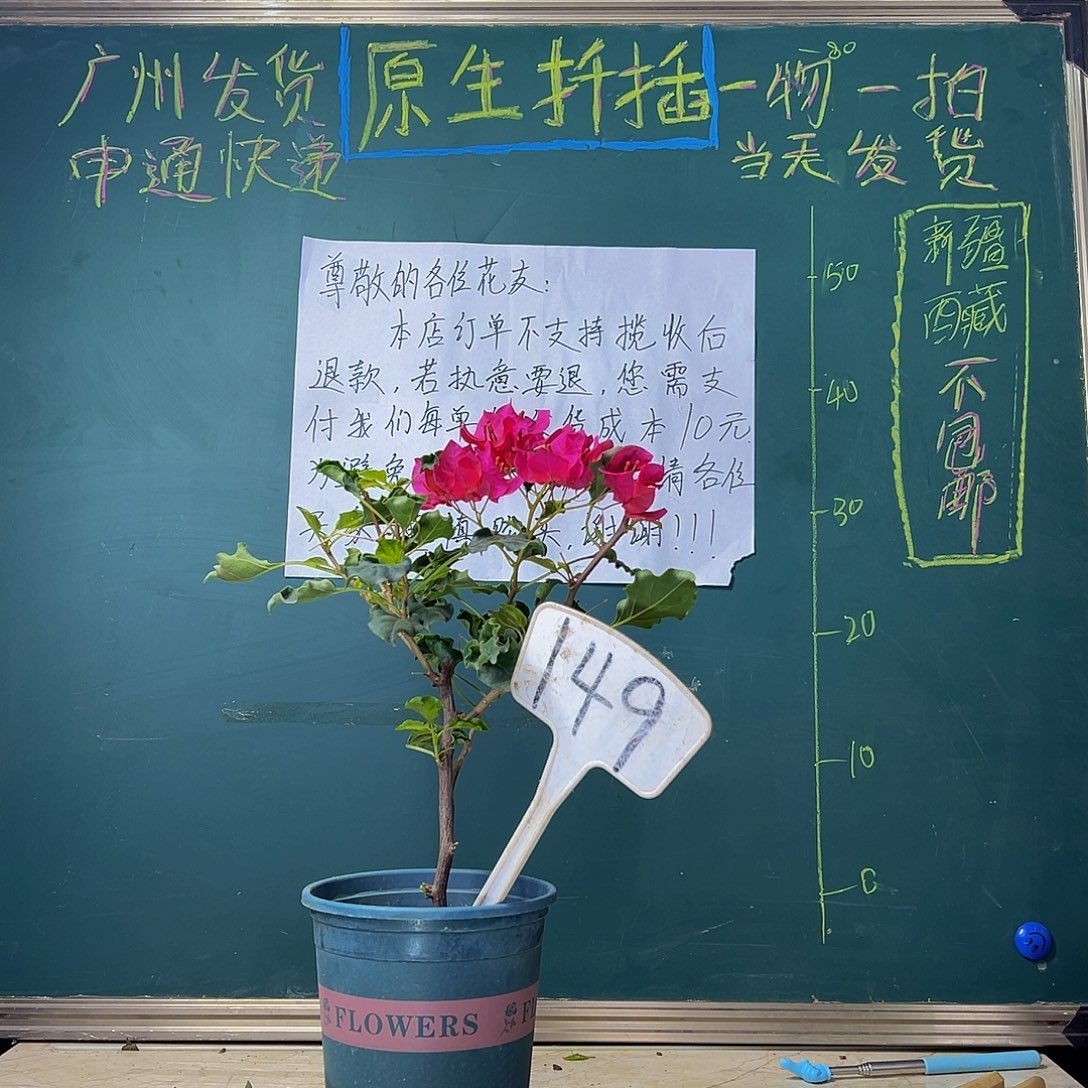 广州发货
申通快递
原生扦插
一物一拍
80
当天发货
新疆
西藏
不
包
邮
尊敬的各位花友:
本店订单不支持揽收后
退款,若执意要退,您需支
付我们每单 货成本10元
为避免 请各位
谢谢!!!
50
40
30
20
10
0
149
FLOWERS